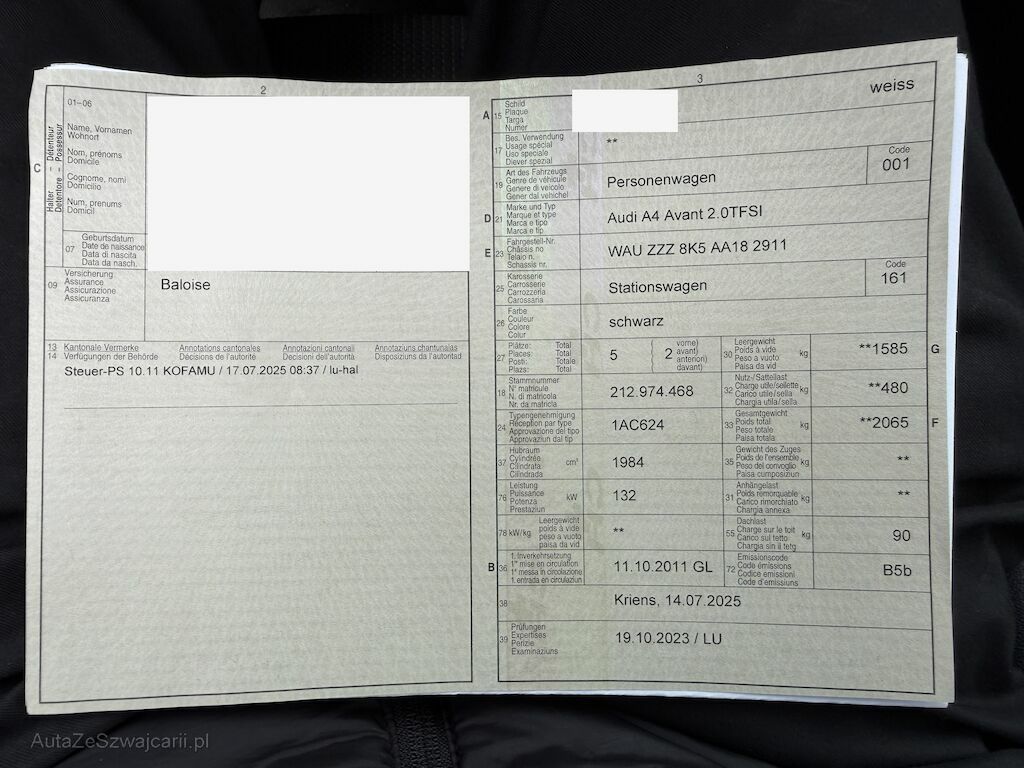 2
01-06
C
Halter Détenteur
Detentore - Possessur
Name, Vornamen
Wohnort
Nom, prénoms
Domicile
Cognome, nomi
Domicilio
Num, prenums
Domicil
07
Geburtsdatum
Date de naissance
Data di nascita
Data da nasch.
09
Versicherung
Assurance
Assicurazione
Assicuranza
Baloise
13 Kantonale Vermerke Annotations cantonales Annotazioni cantonali Annotaziuns chantunalas
14 Verfügungen der Behörde Décisions de l'autorité Decisioni dell'autorità Disposiziuns da l'autoritad
Steuer-PS 10.11 KOFAMU / 17.07.2025 08:37 / lu-hal
3
weiss
A 15
Schild
Plaque
Targa
Numer
17
Bes. Verwendung
Usage spécial
Uso speciale
Diever spezial
**
19
Art des Fahrzeugs
Genre de véhicule
Genere di veicolo
Gener dal vehichel
Personenwagen
Code
001
D 21
Marke und Typ
Marque et type
Marca e tipo
Marca e tip
Audi A4 Avant 2.0TFSI
E 23
Fahrgestell-Nr.
Châssis no
Telaio n.
Schassis nr.
WAU ZZZ 8K5 AA18 2911
25
Karosserie
Carrosserie
Carrozzeria
Carossaria
Stationswagen
Code
161
26
Farbe
Couleur
Colore
Colur
schwarz
27
Plätze: Total
Places: Total
Posti: Totale
Plazs: Total
5
2
vorne)
avant)
anteriori)
davant)
30
Leergewicht
Poids à vide
Peso a vuoto
Paisa da vid
kg
**1585
G
18
Stammnummer
N° matricule
N. di matricola
Nr. da matricla
212.974.468
32
Nutz-/Sattellast
Charge utile/sellette
Carico utile/sella
Chargia utila/sella
kg
**480
24
Typengenehmigung
Réception par type
Approvazione del tipo
Approvaziun dal tip
1AC624
33
Gesamtgewicht
Poids total
Peso totale
Paisa totala
kg
**2065
F
37
Hubraum
Cylindrée
Cilindrata
Cilindrada
cm³
1984
35
Gewicht des Zuges
Poids de l'ensemble
Peso del convoglio
Paisa cumposiziun
kg
**
76
Leistung
Puissance
Potenza
Prestaziun
kW
132
31
Anhängelast
Poids remorquable
Carico rimorchiato
Chargia annexa
kg
**
78 kW/kg
Leergewicht
poids à vide
peso a vuoto
paisa da vid
**
55
Dachlast
Charge sur le toit
Carico sul tetto
Chargia sin il tetg
kg
90
B 36
1. Inverkehrsetzung
1re mise en circulation
1a messa in circolazione
1. entrada en circulaziun
11.10.2011 GL
72
Emissionscode
Code émissions
Codice emissioni
Code d'emissiuns
B5b
38
Kriens, 14.07.2025
39
Prüfungen
Expertises
Perizie
Examinaziuns
19.10.2023 / LU
AutaZeSzwajcarii.pl